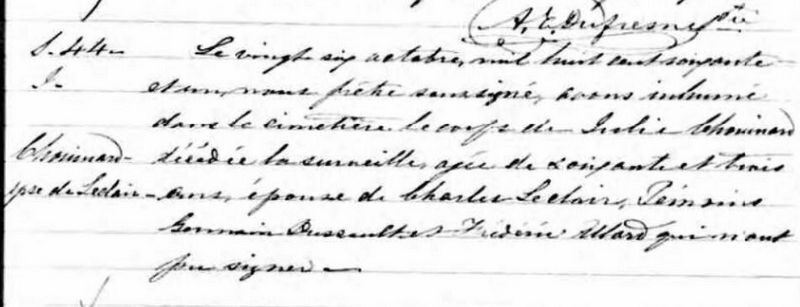 A. E. Dufresne Ptre
S. 44 - Le vingt six octobre, mil huit cent soixante
et un, nous prêtre soussigné, avons inhumé
dans le cimetière le corps de Julie Chouinard
Chouinard - décédée la surveille, agée de soixante et trois
pse de Leclair - ans, épouse de Charles Leclair, Témoins
Germain Dussault et Frédéric Ward qui n'ont
pu signer -